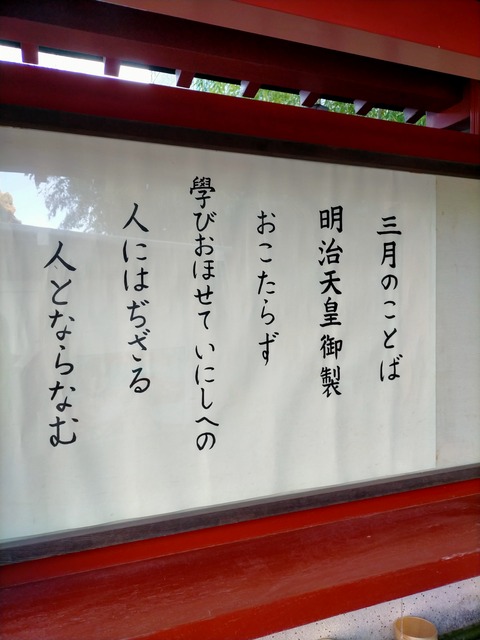 三月のことば
明治天皇御製
おこたらず
學びおほせていにしへの
人にはぢざる
人とならなむ